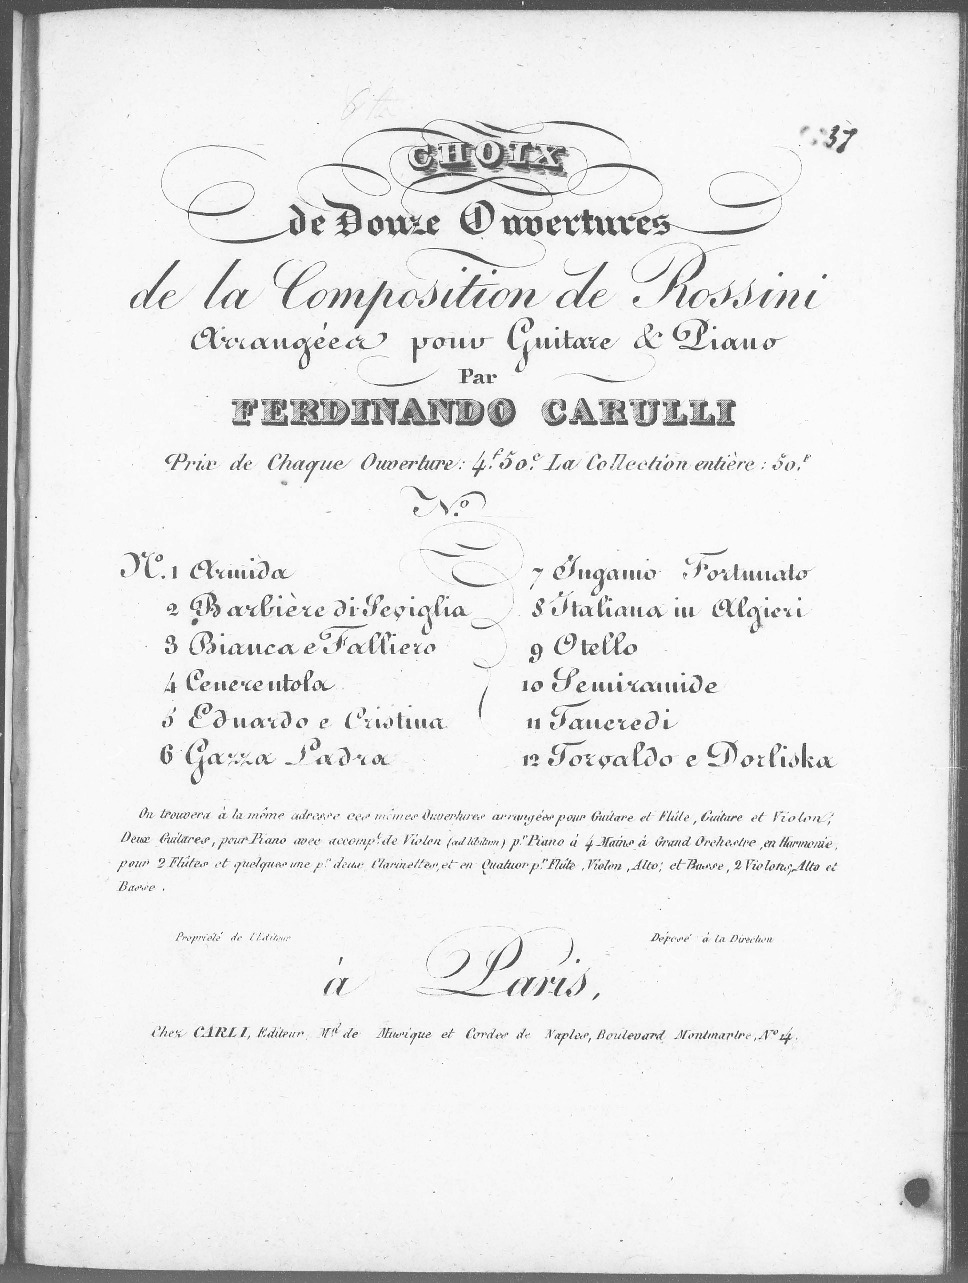 37
CHOIX
de Douze Ouvertures
de la Composition de Rossini
Arrangées pour Guitare & Piano
Par
FERDINANDO CARULLI
Prix de Chaque Ouverture : 4.f 50.c La Collection entière : 50.f
N.o
No. 1 Armida
2 Barbière di Seviglia
3 Bianca e Falliero
4 Cenerentola
5 Eduardo e Cristina
6 Gazza Ladra
7 Inganno Fortunato
8 Italiana in Algieri
9 Otello
10 Semiramide
11 Tancredi
12 Torvaldo e Dorliska
On trouvera à la même adresse ces mêmes Ouvertures arrangées pour Guitare et Flûte, Guitare et Violon,
Deux Guitares, pour Piano avec accomp.t de Violon (ad libitum) p.r Piano à 4 Mains à Grand Orchestre, en Harmonie,
pour 2 Flûtes et quelques une p.r deux Clarinettes, et en Quatuor p.r Flûte, Violon, Alto, et Basse, 2 Violons, Alto et
Basse.
Propriété de l'Editeur
Déposé à la Direction
à Paris,
Chez CARLI, Editeur, M.d de Musique et Cordes de Naples, Boulevard Montmartre, No 14.